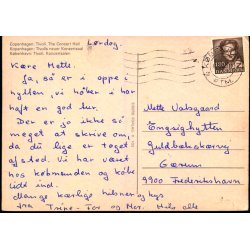 Copenhagen: Tivoli. The Concert Hall
Kopenhagen: Tivolis neuer Konzertsaal
København: Tivoli. Koncertsalen
Lørdag.
Kære Mette.
Ja, så er i oppe i
hytten, vi håber i har
haft en god tur.
Der er jo ikke så
meget at skrive om,
da du lige er taget
afsted. Vi har været
hos købmanden og købt
lidt ind.
Mange kærlige hilsner og kys
fra Trine-Tor og Mor. Hils alle
Mette Valsgaard
Engsighytten
Guldbakkevej
Gærum
9900 Frederikshavn
120
DANMARK